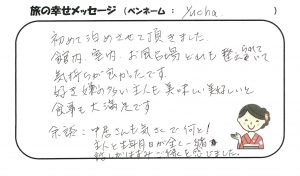 旅の幸せメッセージ（ペンネーム： Yucha ）
初めて泊めさせて頂きました。
館内、室内、お風呂場どれも整えられていて
気持ちが良かったです。
好き嫌の多い主人も美味しい美味しいと
食事も大満足です
余談：中居さんも気さくで何と！
主人と生年月日が全く一緒
話がはずみご縁を感じました。